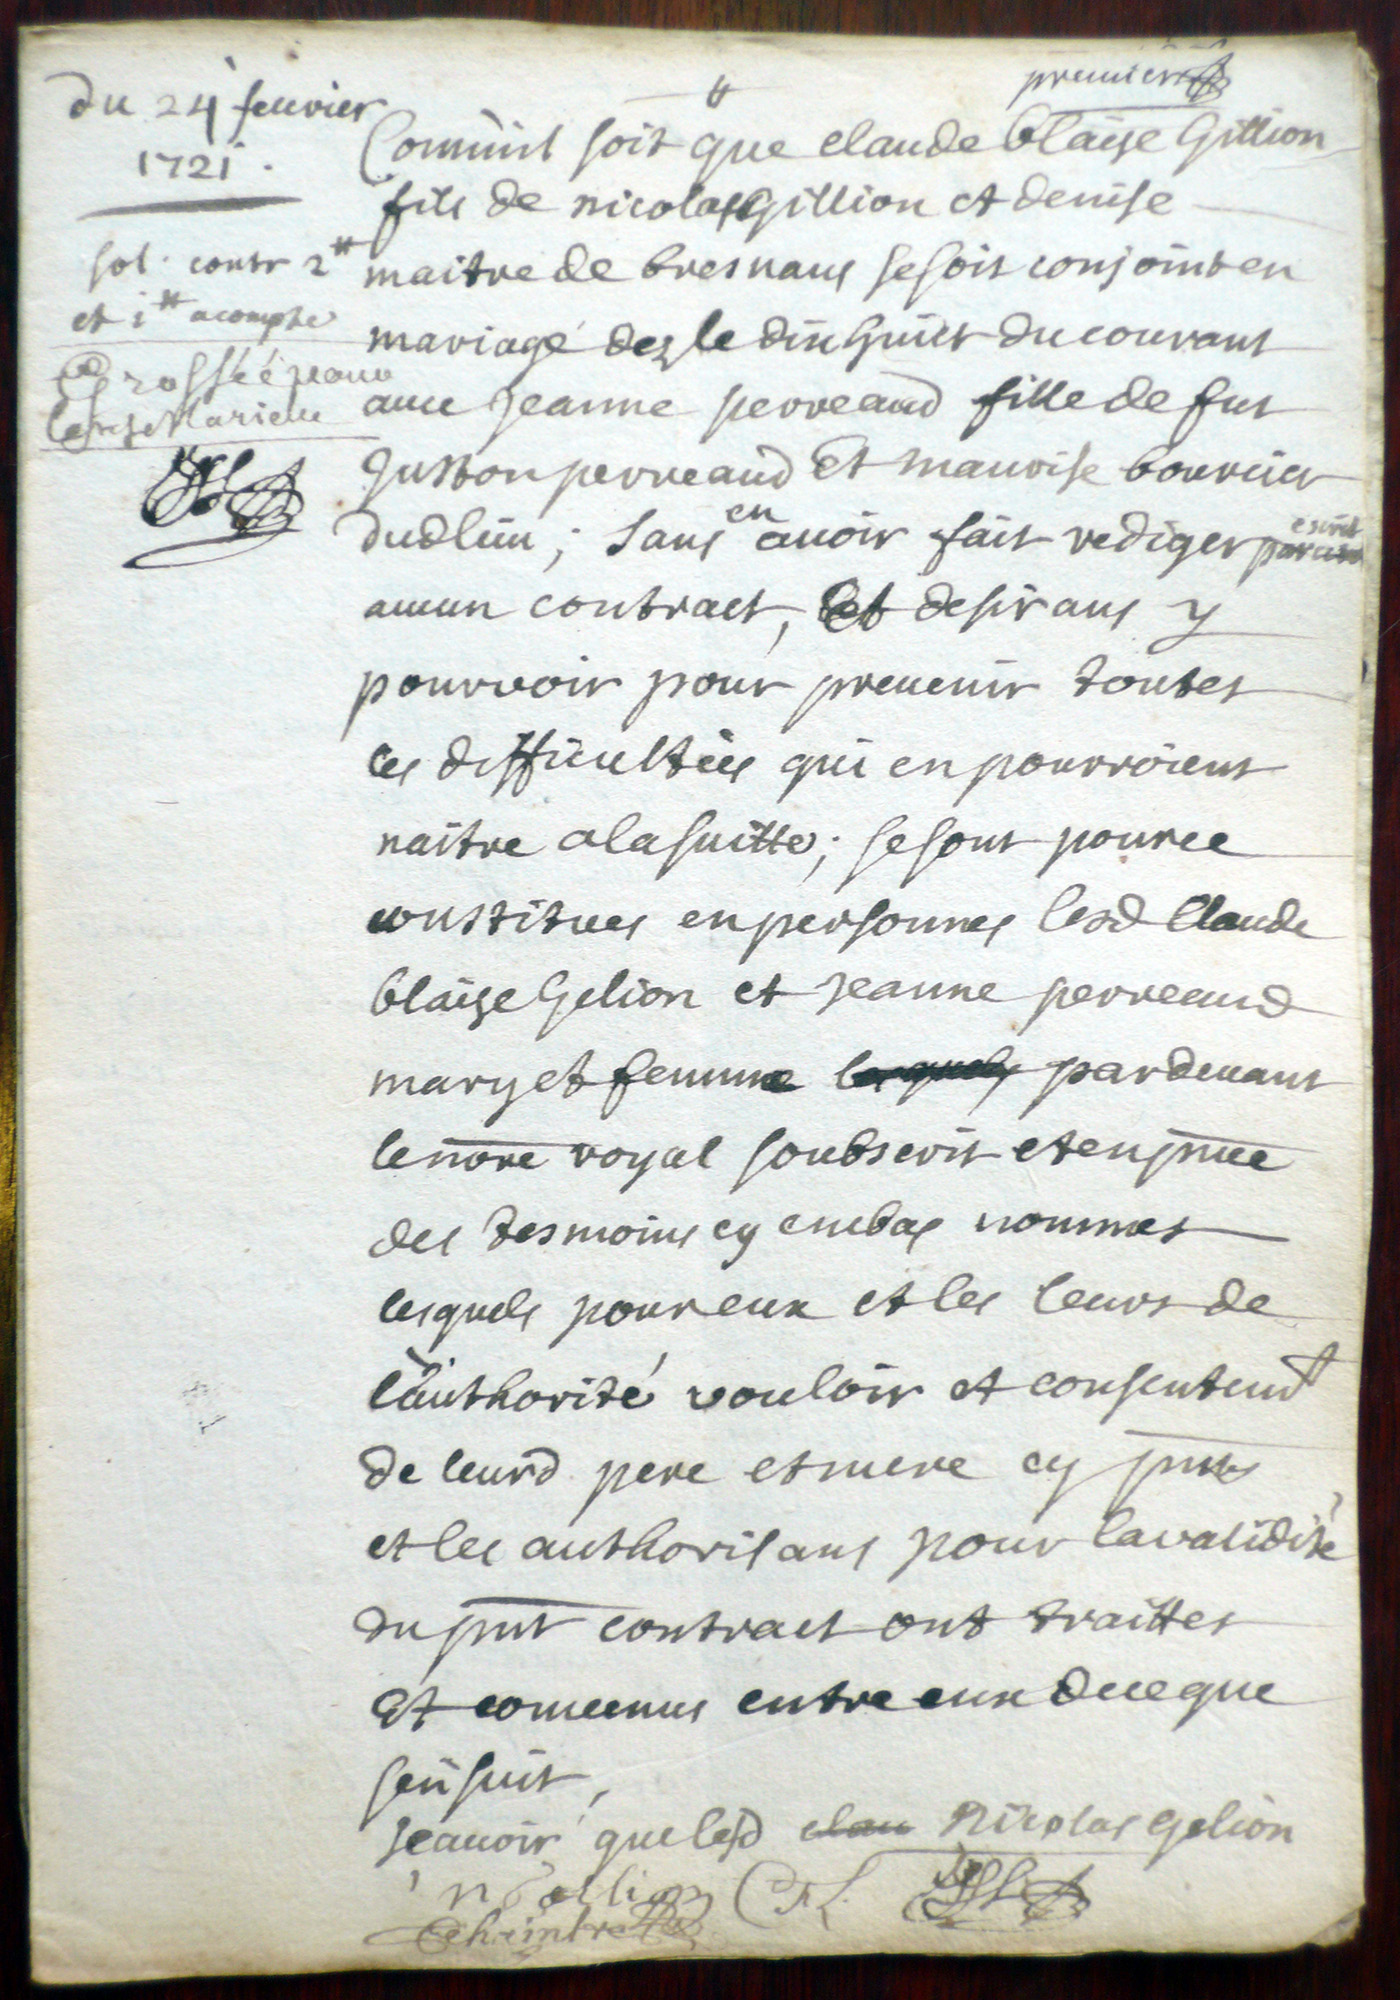 premier
du 24 feuvrier
1721.
sol. contr 2tt
et 1tt acompte
Grossée pour
Comm̃e soit que Claude blaise Gillion
fils de nicolas Gillion et denise
maitre de bresnans se soit conjoint en
mariage dez le dix huict du courant
auec jeanne perreaud fille de fut
perreaud Et mauvise bourcier
dudlieu ; sans en auoir fait rediger par escrit
aucun contract, Et desirans y
pourvoir pour preuenir toutes
les difficultées qui en pourroient
naitre alasuitte ; se sont pource
constitues en personnes lesd Claude
blaise Gelion et jeanne perreaud
mary et femme lesquels pardeuant
le nore royal soubscrit et en pnce
des tesmoins cy embas nommes
lesquels pour eux et les leurs de
l'authorité vouloir et consentemt
de leurd pere et mere cy pnts
et les authorisans pour la validité
du pnt contract ont traittes
Et conuenus entre eux de ce que
sensuit,
scauoir que lesd clau Nicolas Gelion
n Gillion C R